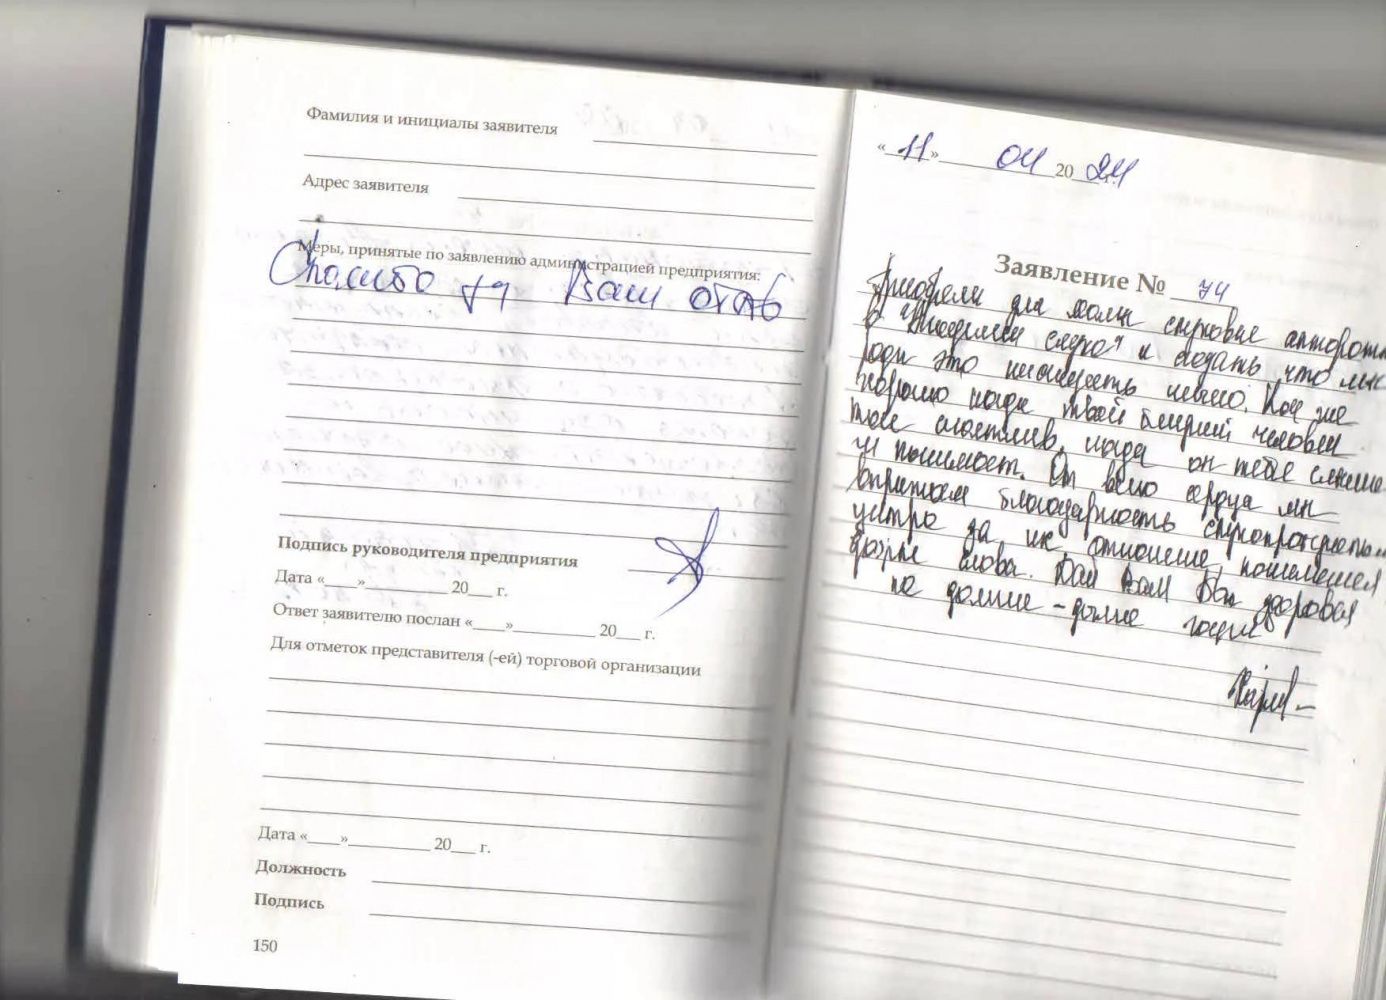 Фамилия и инициалы заявителя
Адрес заявителя
Меры, принятые по заявлению администрацией предприятия:
Спасибо за Ваш отзыв
Подпись руководителя предприятия
Дата «___»__________ 20___ г.
Ответ заявителю послан «____»__________ 20___ г.
Для отметок представителя (-ей) торговой организации
Дата «____»__________ 20___ г.
Должность
Подпись
150
«11» 04 2024
Заявление № 74
Приобрели для мамы слуховые аппараты
в и сказать что мы
рады это не сказать ничего. Как же
хорошо когда твой близкий человек
тоже счастлив, когда он тебя слышит
и понимает. От всего сердца мы
выражаем благодарность слухопротезному
центру за их отношение, понимание
добрые слова. Дай Вам Бог здоровья
на долгие-долгие годы